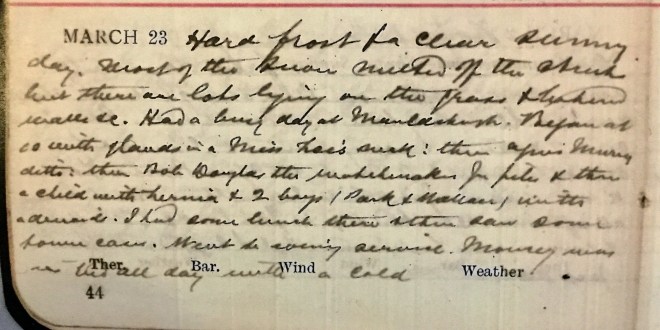 MARCH 23 Hard frost & a clear sunny
day. Most of the snow melted off the streets
but there are lots lying on the grass & behind
walls &c. Had a busy day at Mauchline. Began at
10 with glands in a Miss neck: then Agnes Murray
ditto: then Bob Douglas the watchmaker for piles & then
a child with hernia & 2 boys (Park & Wallace) with
adenoids. I had some lunch there & then saw some
town cases. Went to evening service. Mousey was
in bed all day with a cold
Ther. Bar. Wind Weather
44